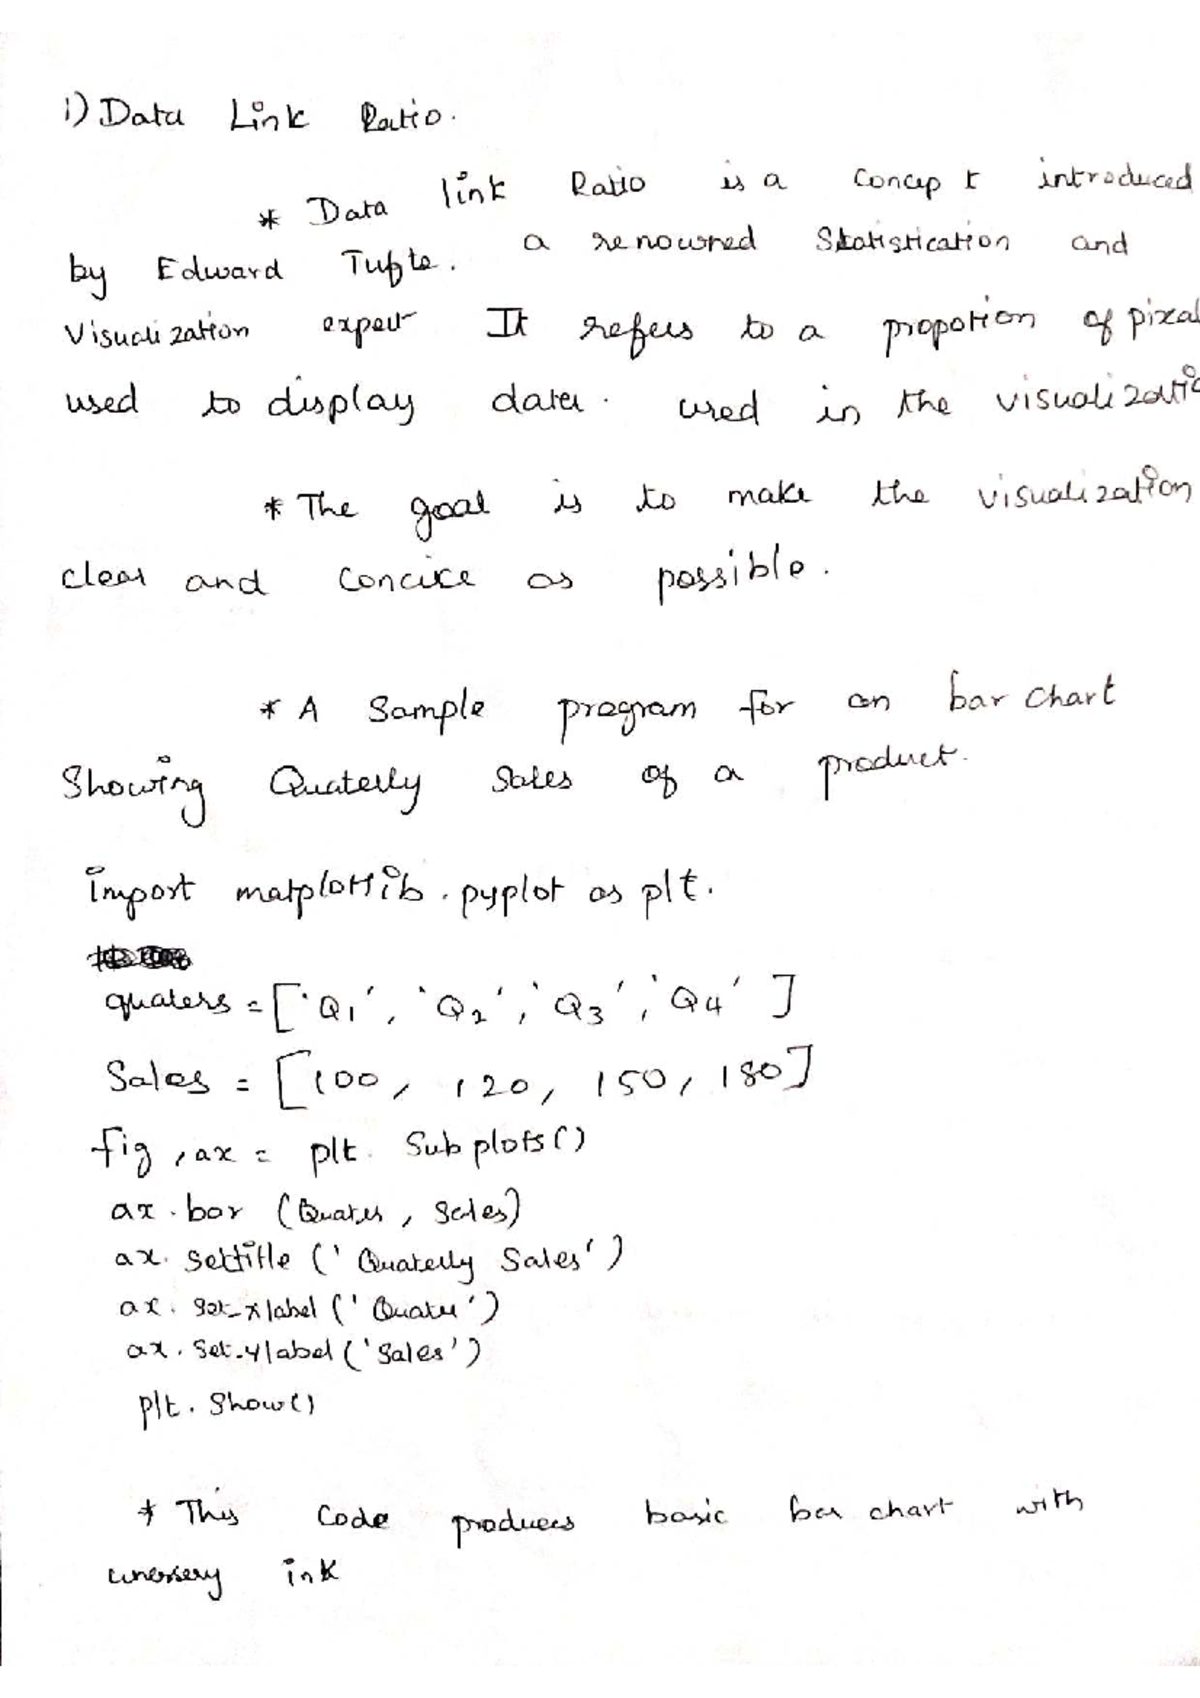 i) Data Link Ratio.
* Data link Ratio is a concept introduced
by Edward Tufte. a renowned Statistication and
Visualization expert It refers to a propotion of pixal
used to display data. used in the visualizatio
* The goal is to make the visualization
clear and concice as possible.
* A Sample program for an bar chart
Showing Quaterly Sales of a product.
import matplotlib.pyplot as plt.
quaters = ['Q1', 'Q2', 'Q3', 'Q4']
Sales = [100, 120, 150, 180]
fig, ax = plt. Subplots()
ax.bar (Quaters, Sales)
ax. Settitle ('Quaterly Sales')
ax. Set_xlabel ('Quater')
ax. Set_ylabel ('Sales')
plt. Show()
* This Code produces basic bar chart with
unessery ink